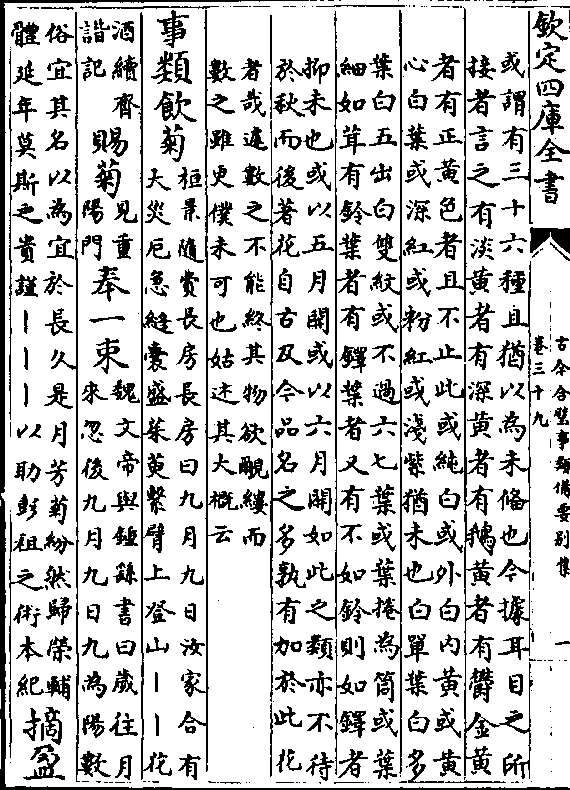 欽定四庫全書
古今合璧事類備要別集
卷三十九
一
或謂有三十六種且猶以為未備也今據耳目之所
接者言之有淡黄者有深黄者有鵝黄者有欝金黄
者有正黄色者且不止此或純白或外白内黄或黄
心白葉或深紅或粉紅或淺紫猶未也白單葉白多
葉白五出白雙紋或不過六七葉或葉捲為筒或葉
細如茸有鈴葉者有鐸葉者又有不如鈴則如鐸者
抑未也或以五月開或以六月開如此之類亦不待
於秋而後著花自古及今品名之多孰有加於此花
者哉遽數之不能終其物欲覼縷而
數之雖更僕未可也姑述其大概云
事類飲菊
桓景隨費長房長房曰九月九日汝家合有
大災厄急縫囊盛茱萸繫臂上登山丨丨花
酒續齊
諧記
賜菊
見重
陽門
奉一束
魏文帝與鍾繇書曰歲往月
來忽後九月九日九為陽數
俗宜其名以為宜於長久是月芳菊紛然歸榮輔
體延年莫斯之貴謹丨丨丨以助彭祖之術本紀
摘盈